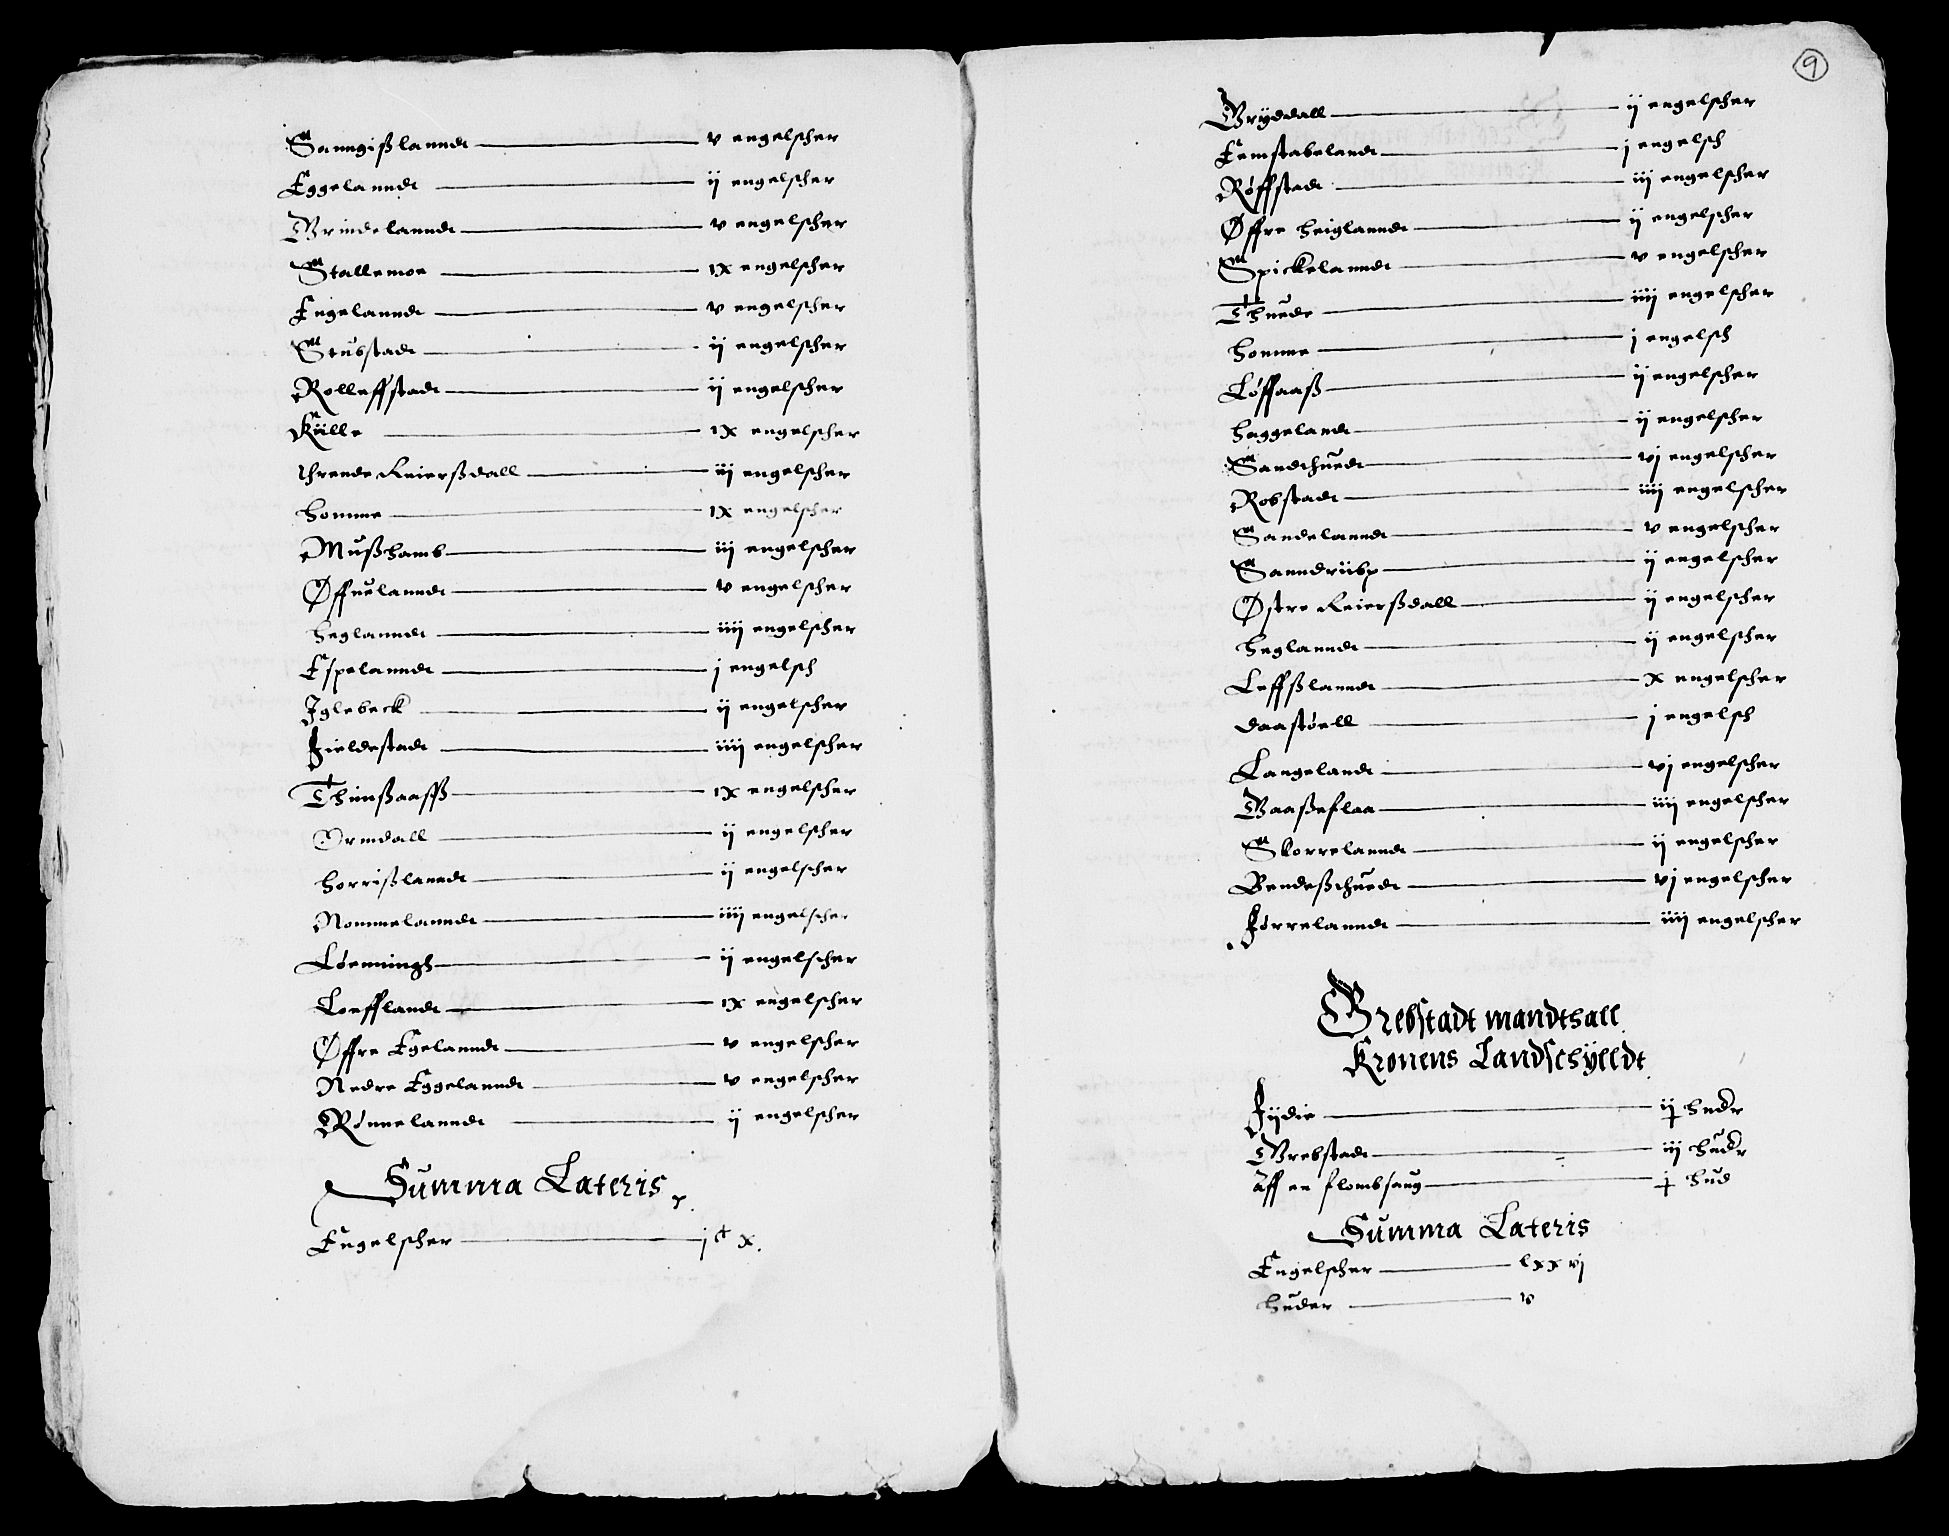 Sanngißlanndt v engelscher
Eggelanndt ij engelscher
Vrindelanndt v engelscher
Stallemoe ix engelscher
Engelanndt v engelscher
Stubstadt ij engelscher
Rolleffstadt ij engelscher
Külle ix engelscher
Thrende Reierßdall iij engelscher
Homme ix engelscher
Mußhamb iij engelscher
Øffuelanndt v engelscher
Heglanndt iiij engelscher
Espelanndt j engelsch
Iglebeck ij engelscher
Fieldestadt iiij engelscher
Thimßaasß ix engelscher
Ormdall ij engelscher
Horrißlanndt ij engelscher
Nommelanndt iiij engelscher
Løenningh ij engelscher
Loefflandt ix engelscher
Øffre Egelanndt v engelscher
Nedre Eggelanndt v engelscher
Rønnelanndt ij engelscher
Summa Lateris
Engelscher j c x
9
Vryddall ij engelscher
Femstabelandt j engelsch
Røffstadt iij engelscher
Øffre Heiglanndt ij engelscher
Spickelanndt v engelscher
Thuede iiij engelscher
Homme j engelsch
Løffaaß ij engelscher
Haggelandt ij engelscher
Sandthuedt vj engelscher
Robstadt iiij engelscher
Sandelanndt v engelscher
Sanndrübp ij engelscher
Østre Reierßdall ij engelscher
Heglanndt ij engelscher
Leffßlanndt x engelscher
Daastøell j engelsch
Langelandt vj engelscher
Vaaßeflaa iiij engelscher
Skorrelanndt ij engelscher
Bendeßthuedt vj engelscher
Jørrelanndt iiij engelscher
Grebstadt mandthall
Kronens Landschylldt
Fijdie ij hudr
Vrebstadt iij hudr
Aff en flombsaug j hud
Summa Lateris
Engelscher lxxvj
Huder v